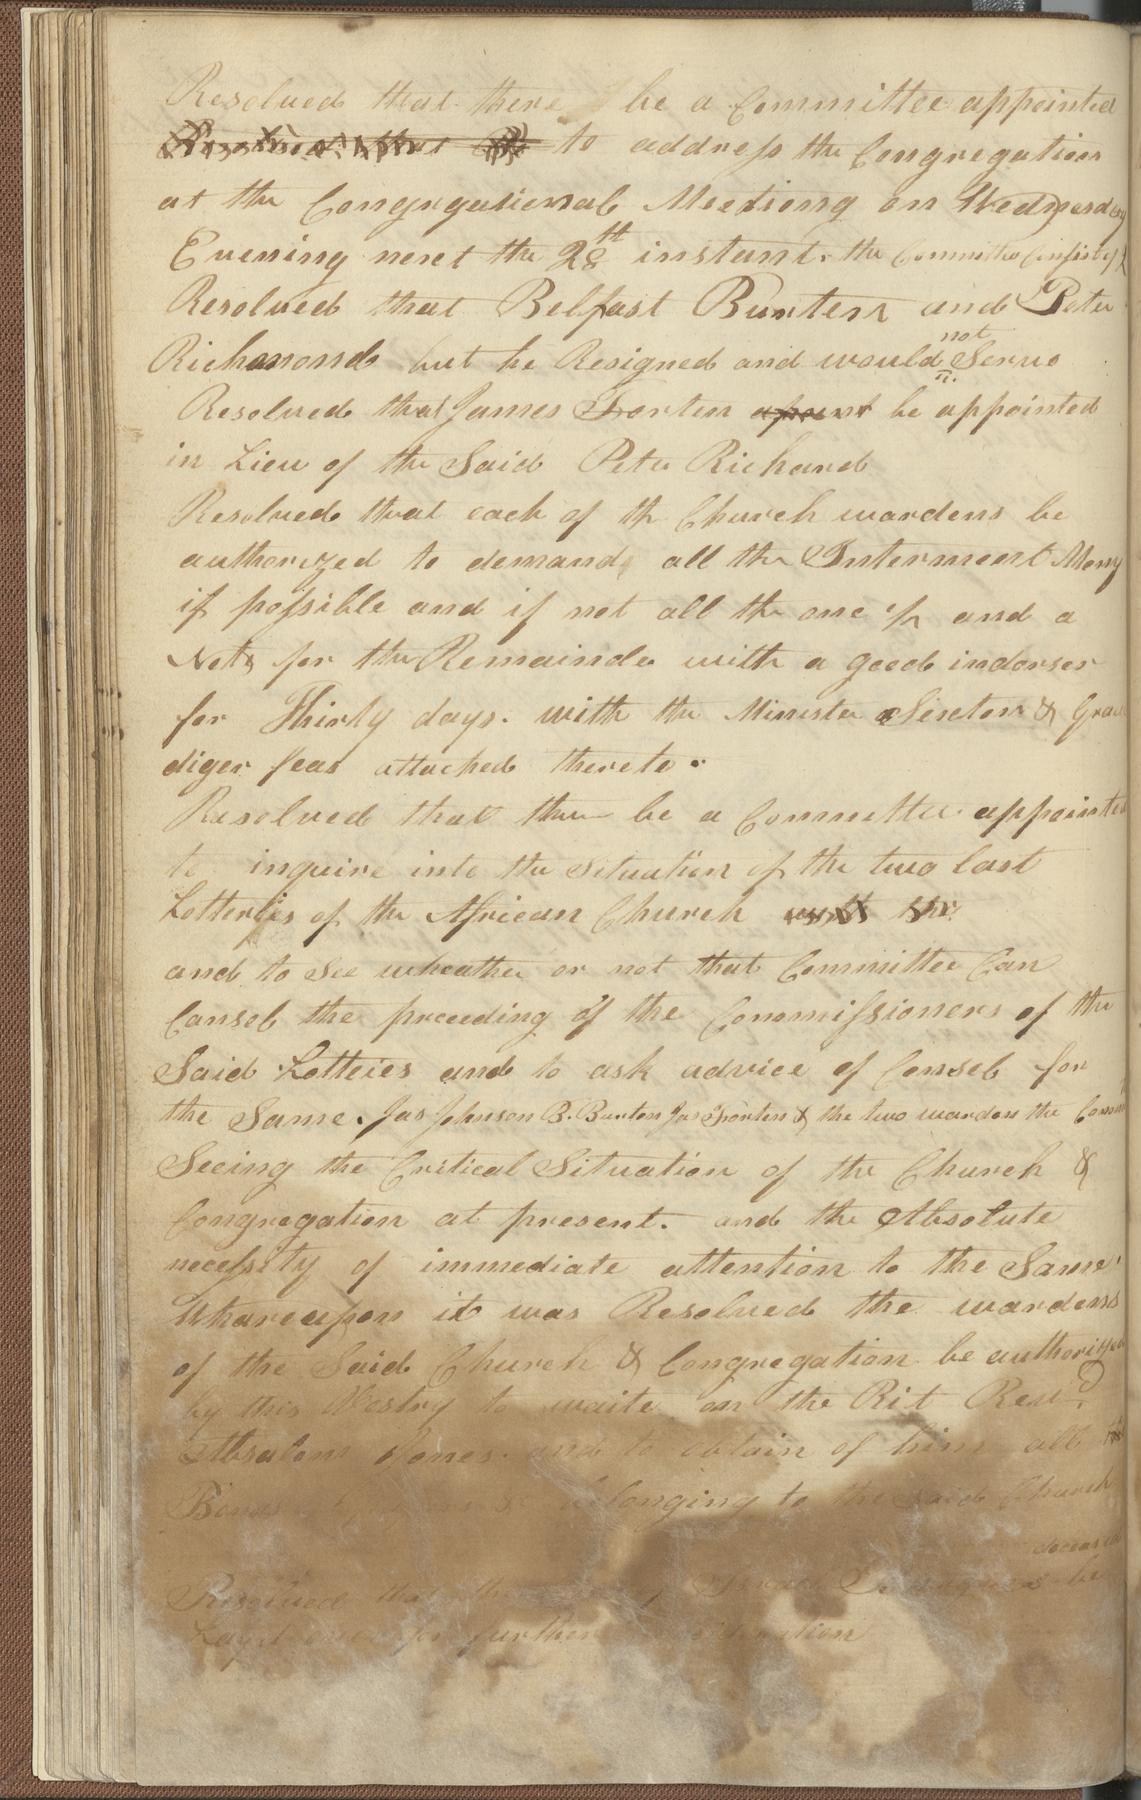 Resolved that there be a Committee appointed
to address the Congregation
at the Congregational Meetiong on Wednesday
Evening next the 28th instant. the Committee
Resolved that Belfast Burten and Peter
Richmond but he Resigned and would not Serve
Resolved that James Forten be appointed
in Lieu of the Said Peter Richard
Resolved that each of th Church wardens be
authorized to demand all the Interment Mony
if possible and if not all the one and a
Note for the Remainder with a good indorser
for Thirty days. with the Minister Sexton &
diger feas attached thereto.
Resolved that there be a Committee appointed
to inquire into the Situation of the two last
Lotteries of the African Church
and to See wheather or not that Committee Can
Cansel the preceding of the Commissioners of the
Said Lotteies and to ask advice of Consel for
the Same. Jas Johnson B. Burton Jas Forten & the two warden the
Seeing the Critical Situation of the Church &
Congregation at present. and the Absolute
necessity of immediate attention to the Same
Whareupon it was Resolved the wardens
of the Said Church & Congregation be authorized
by this Vestry to waite on the Rit Revd
Absalom Jones and to obtain of him all the
belonging to the Said Church
deceased
Resolved that the be
Layd over for further